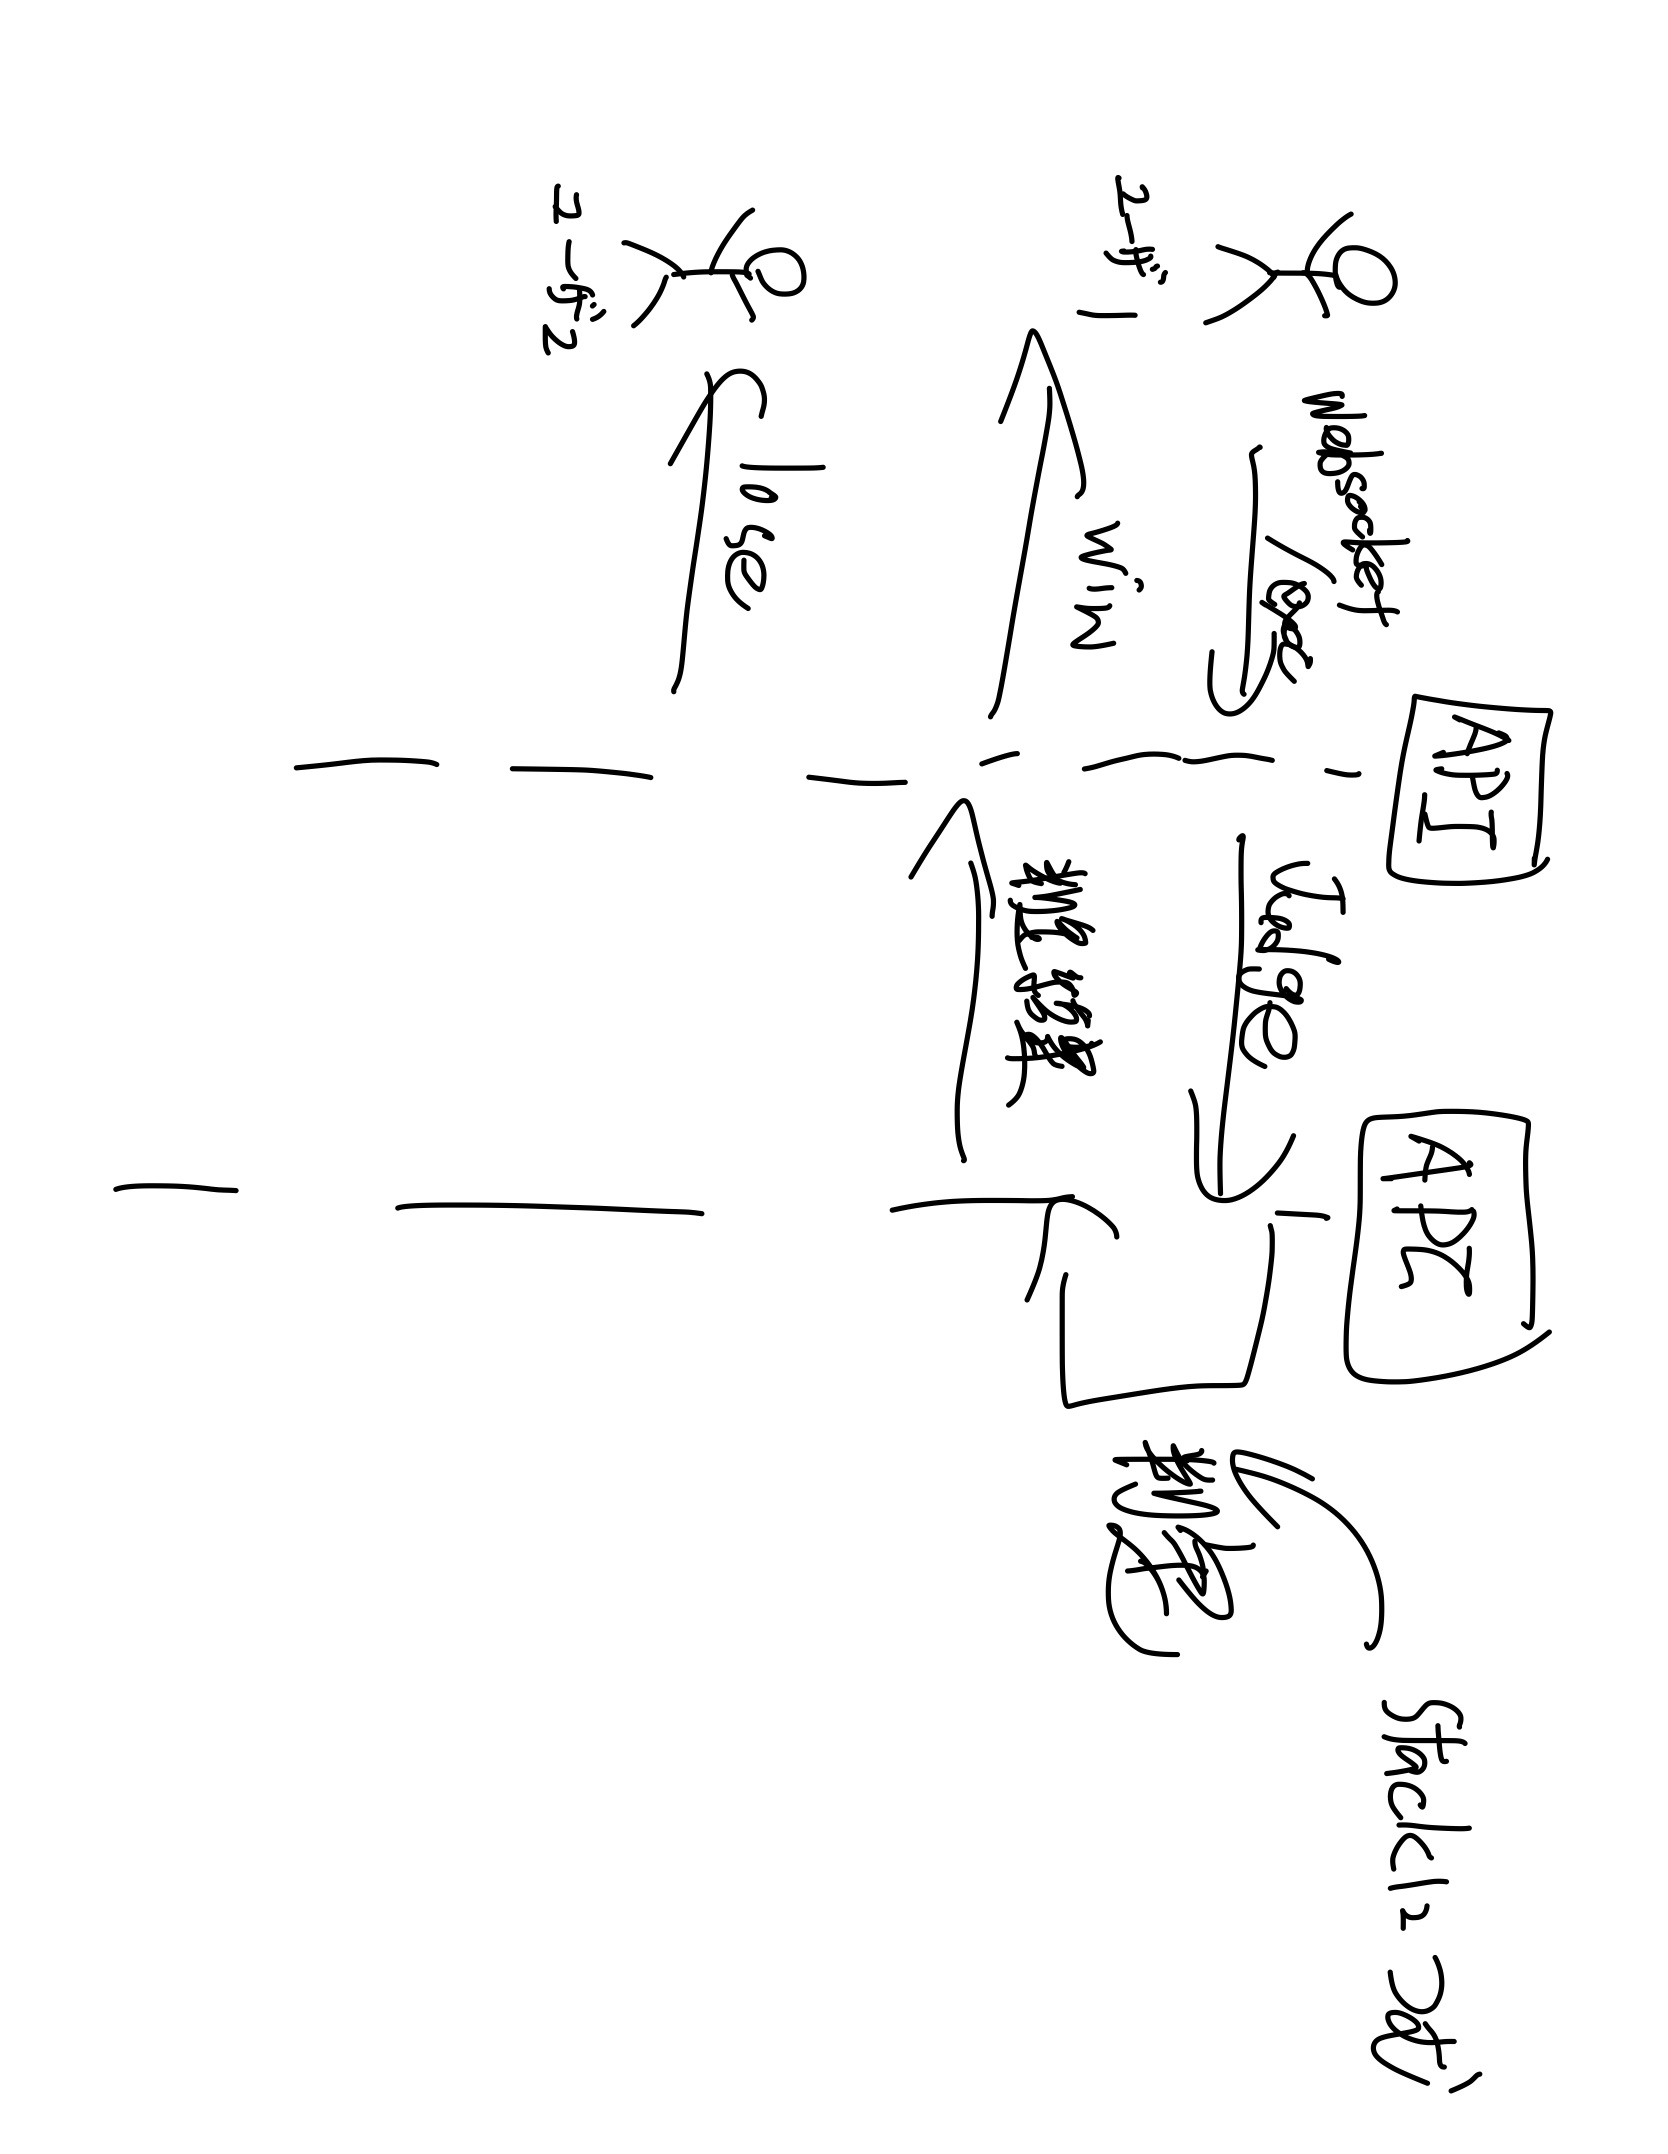 API
API
Stackにつめ
websocket
/exec
Judge
判定
ユーザ
win
判定結果
lose
ユーザ2